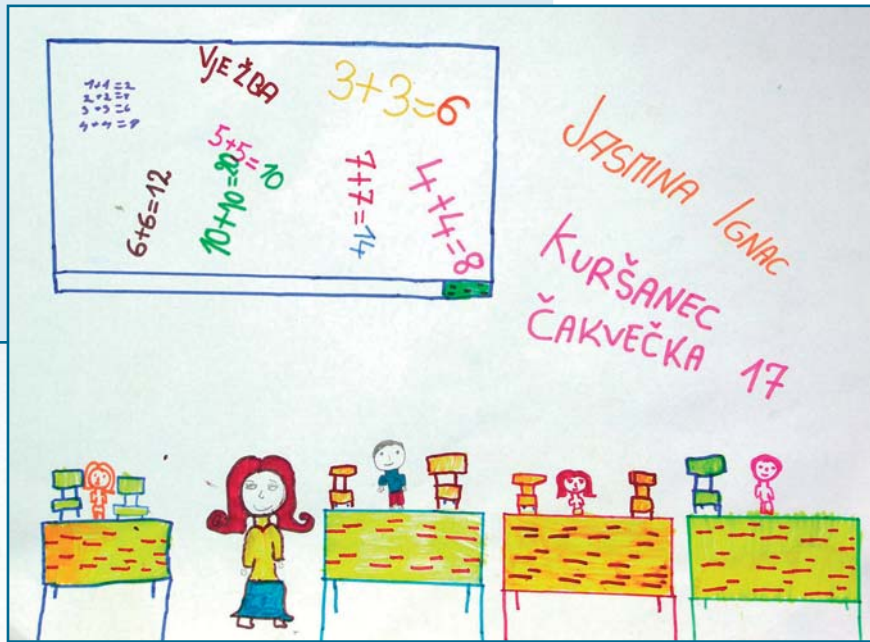 VJEŽBA
1+1=2
2+2=4
3+3=6
4+4=8
3+3=6
5+5=10
6+6=12
10+10=20
7+7=14
4+4=8
JASMINA IGNAC
KURŠANEC
ČAKVEČKA 17